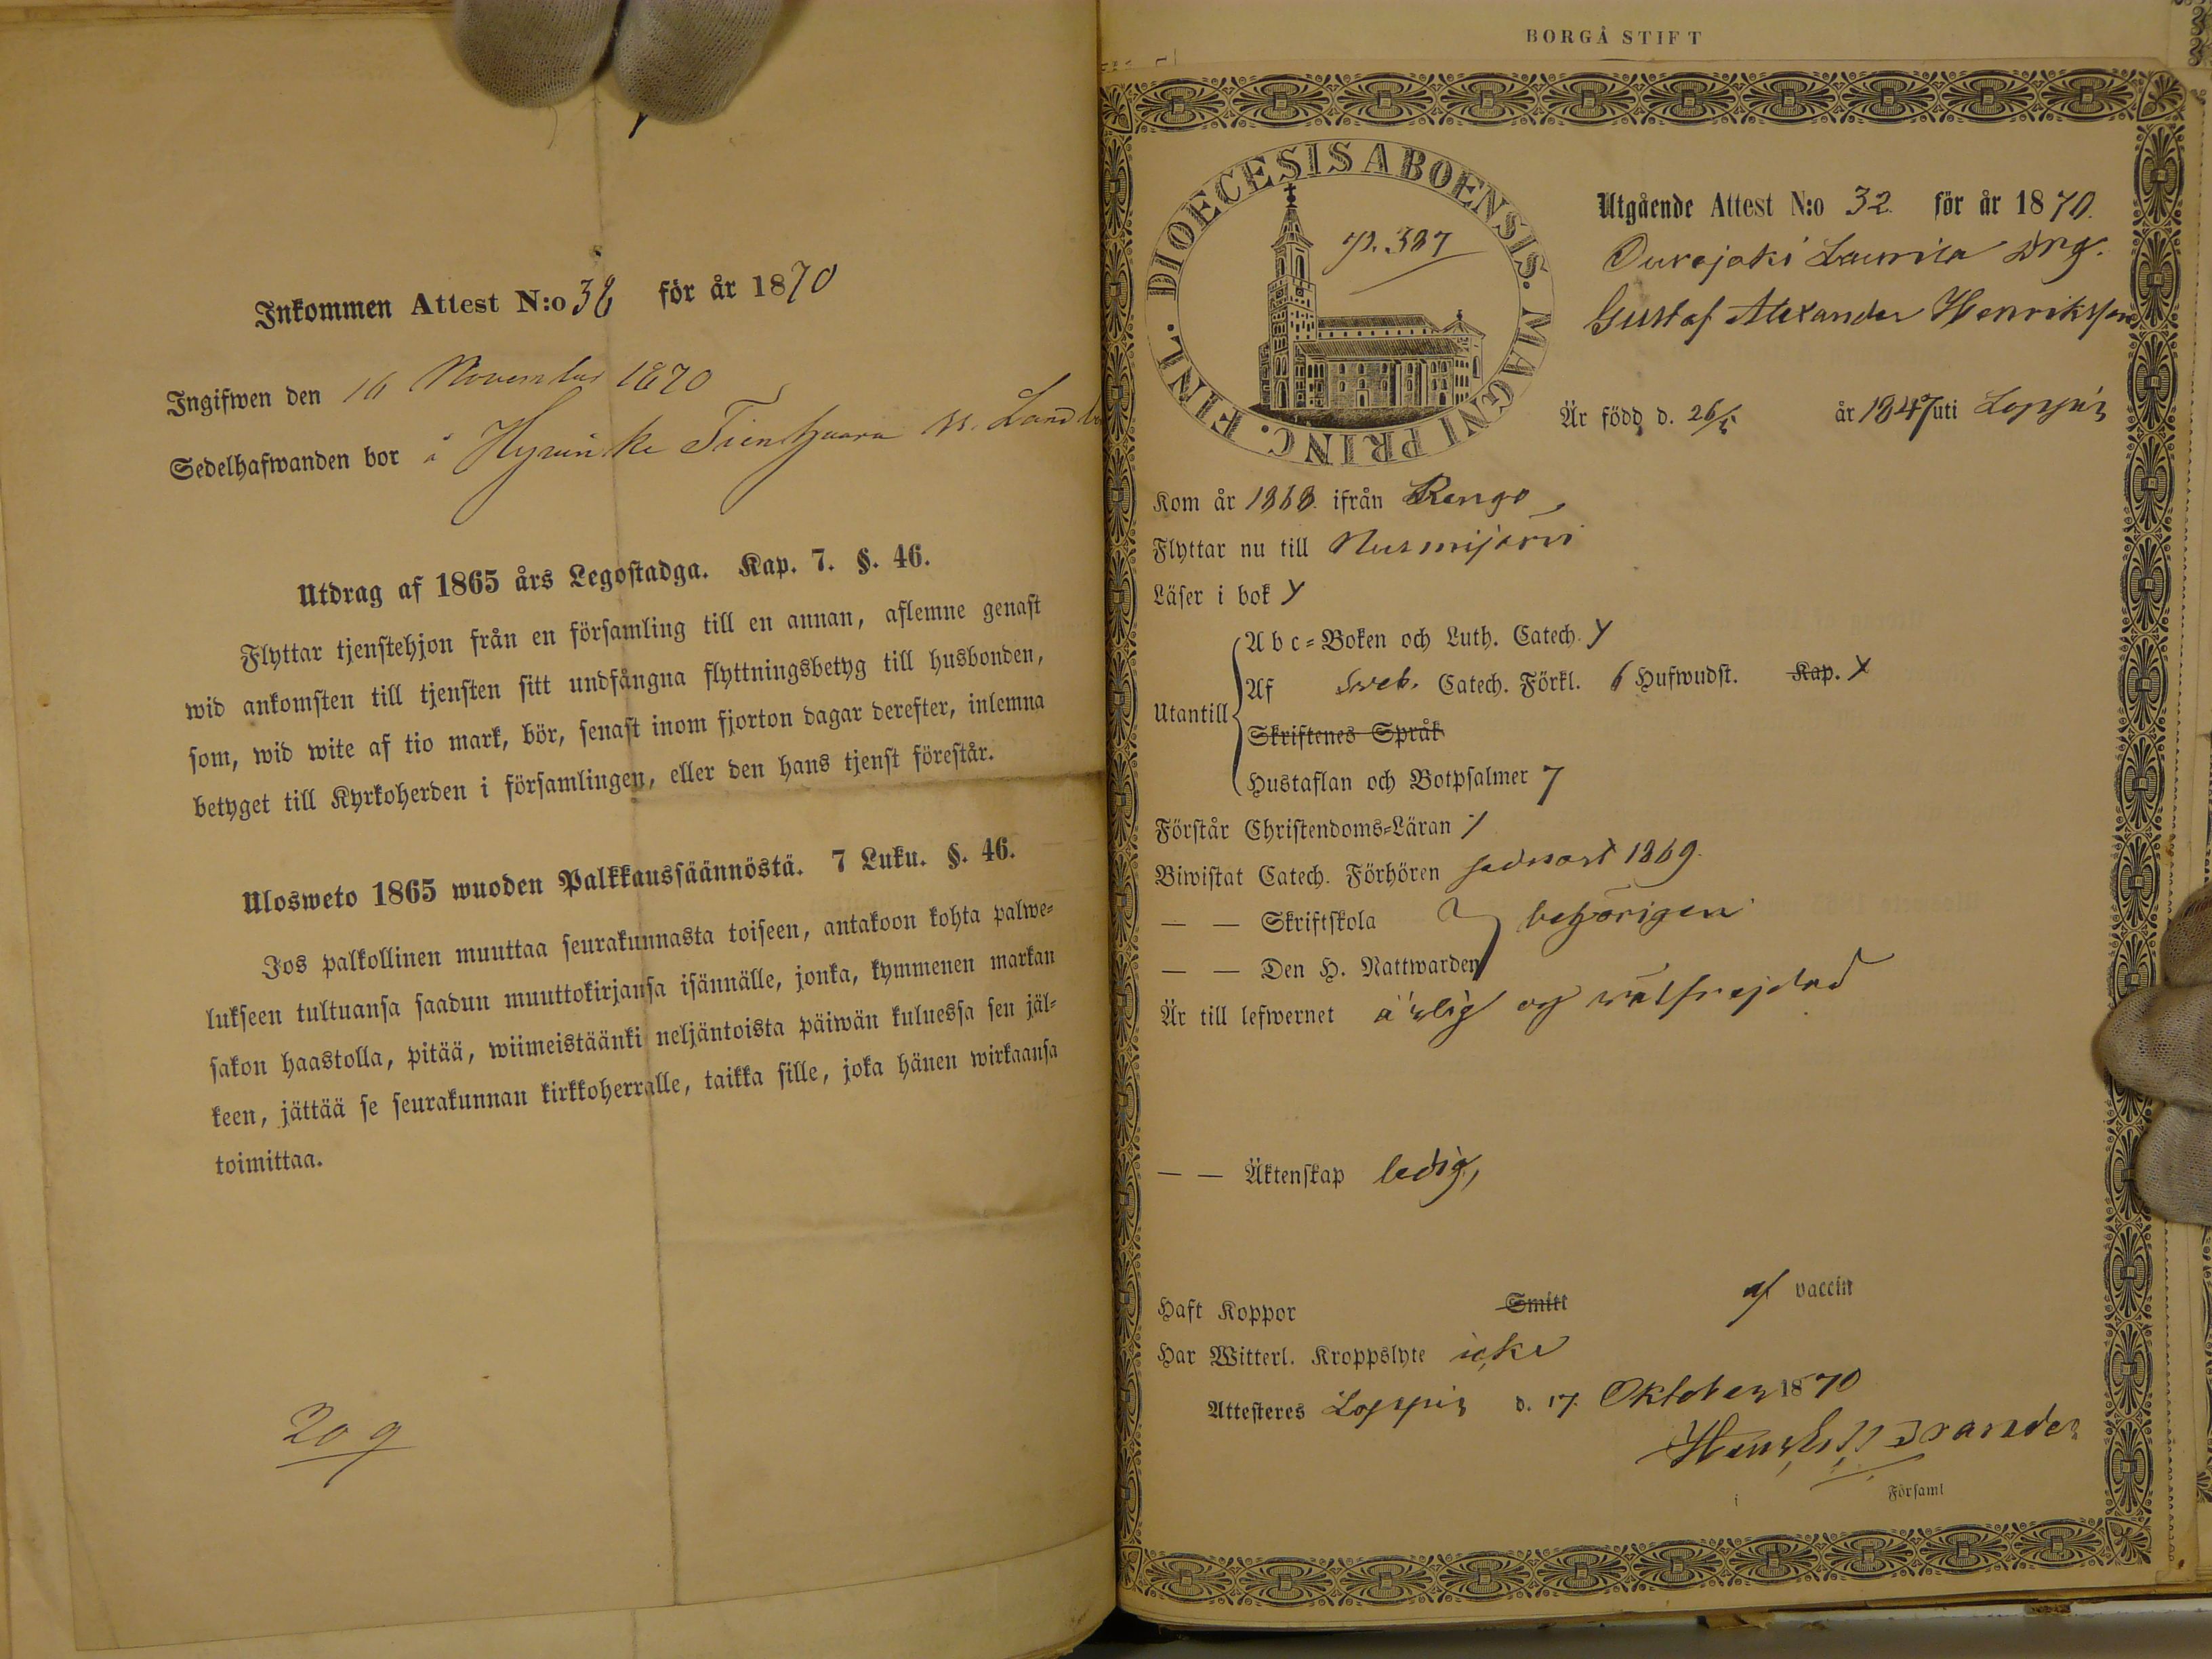 Inkommen Attest N:o 38 för år 1870
Ingifwen den 16 November 1870
Sedelhafwanden bor å Hyvinke
Utdrag af 1865 års Legostadga. Kap. 7. §. 46.
Flyttar tjenstehjon från en församling till en annan, aflemne genast
wid ankomsten till tjensten sitt undfångna flyttningsbetyg till husbonden,
som, wid wite af tio mark, bör, senast inom fjorton dagar derefter, inlemna
betyget till Kyrkoherden i församlingen, eller den hans tjenst förestår.
Ulosweto 1865 wuoden Palkkaussäännöstä. 7 Luku. §. 46.
Jos palkollinen muuttaa seurakunnasta toiseen, antakoon kohta palwe-
lukseen tultuansa saadun muuttokirjansa isännälle, jonka, kymmenen markan
sakon haastolla, pitää, wiimeistäänki neljäntoista päiwän kuluessa sen jäl-
keen, jättää se seurakunnan kirkkoherralle, taikka sille, joka hänen wirkaansa
toimittaa.
209
BORGÅ STIFT
DIOECESIS ABOENSIS. MAGNI PRINC. FINL.
p. 387
Utgående Attest N:o 32. för år 1870.
Ourajoki Laurila drg.
Gustaf Alexander Henriksson
Är född d. 26/5 år 1847 uti Loppis
Kom år 1868. ifrån Rengo
Flyttar nu till Nurmijärvi
Läser i bok y
Utantill
Abc-Boken och Luth. Catech. y
Af Sveb. Catech. Förkl. 6 Hufwudst. Kap. x
Skriftenes Språk
Hustaflan och Botpsalmer 7
Förstår Christendoms-Läran
Biwistat Catech. Förhören sednast 1869.
— — Skriftskola } behörigen
— — Den H. Nattwarden
Är till lefwernet ärlig og välfrejdad
— — Äktenskap ledig,
Haft Koppor Smitt af vaccin
Har Witterl. Kroppslyte icke
Attesteres Loppis d. 17. Oktober 1870
Brander
i Församl